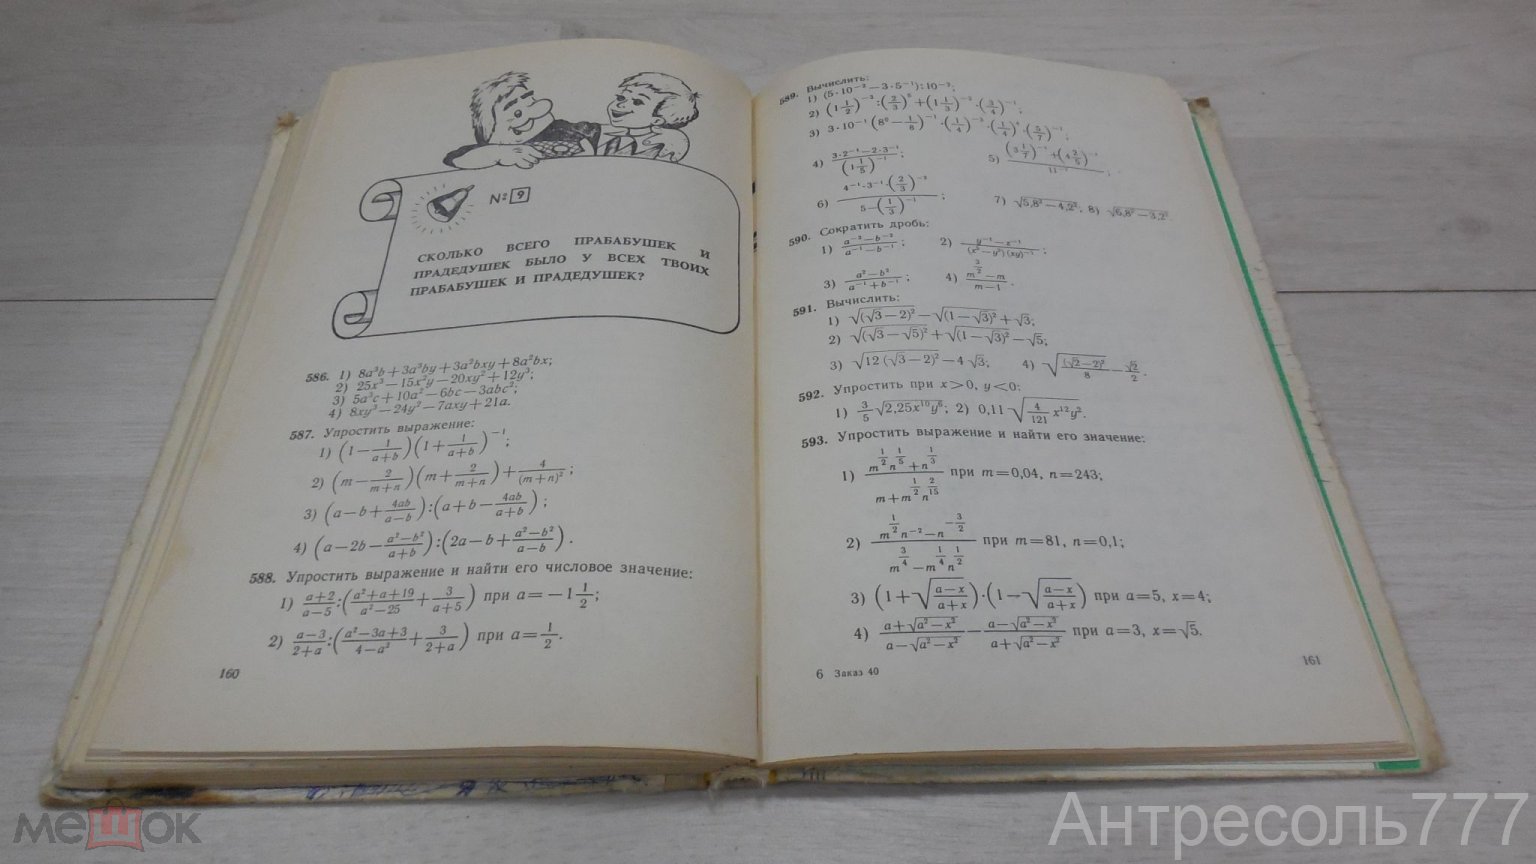 № 9
СКОЛЬКО ВСЕГО ПРАБАБУШЕК И
ПРАДЕДУШЕК БЫЛО У ВСЕХ ТВОИХ
ПРАБАБУШЕК И ПРАДЕДУШЕК?
586. 1) 8a³b+3a²by+3a²bxy+8a²bx;
2) 25x³−15x²y−20xy²+12y³;
3) 5a³c+10a²−6bc−3abc²;
4) 8xy³−24y²−7axy+21a.
587. Упростить выражение:
1) (1−1/(a+b))(1+1/(a+b))⁻¹;
2) (m−2/(m+n))(m+2/(m+n))+4/(m+n)²;
3) (a−b+4ab/(a−b)):(a+b−4ab/(a+b));
4) (a−2b−(a²−b²)/(a+b)):(2a−b+(a²−b²)/(a−b)).
588. Упростить выражение и найти его числовое значение:
1) (a+2)/(a−5):((a²+a+19)/(a²−25)+3/(a+5)) при a=−1 1/2;
2) (a−3)/(2+a):((a²−3a+3)/(4−a²)+3/(2+a)) при a=1/2.
160
589. Вычислить:
1) (5·10⁻²−3·5⁻¹):10⁻²;
4) (3·2⁻¹−2·3⁻¹)/(1 1/5)⁻¹; 5)
6) (4⁻¹·3⁻¹·(2/3)⁻²)/(5−(1/3)⁻¹); 7) √(5,8²−4,2²); 8) √(6,8²−3,2²)
590. Сократить дробь:
1) (a⁻²−b⁻²)/(a⁻¹−b⁻¹); 2) (y⁻¹−x⁻¹)/((x²−y²)(xy)⁻¹);
3) (a²−b²)/(a⁻¹+b⁻¹); 4) (m^(3/2)−m)/(m−1).
591. Вычислить:
1) √((√3−2)²)−√((1−√3)²)+√3;
2) √((√3−√5)²)+√((1−√3)²)−√5;
3) √(12(√3−2)²)−4√3; 4) √((√2−2)²/8)−√2/2.
592. Упростить при x>0, y<0:
1) 3/5 √(2,25x¹⁰y⁶); 2) 0,11 √(4/121 x¹²y²).
593. Упростить выражение и найти его значение:
1) (m^(1/2)n^(1/5)+n^(1/3))/(m+m^(1/2)n^(2/15)) при m=0,04, n=243;
2) (m^(1/2)n⁻²−n^(−3/2))/(m^(3/4)−m^(1/4)n^(1/2)) при m=81, n=0,1;
3) (1+√((a−x)/(a+x)))·(1−√((a−x)/(a+x))) при a=5, x=4;
4) (a+√(a²−x²))/(a−√(a²−x²))−(a−√(a²−x²))/(a+√(a²−x²)) при a=3, x=√5.
6 Заказ 40
161
мешок
Антресоль777